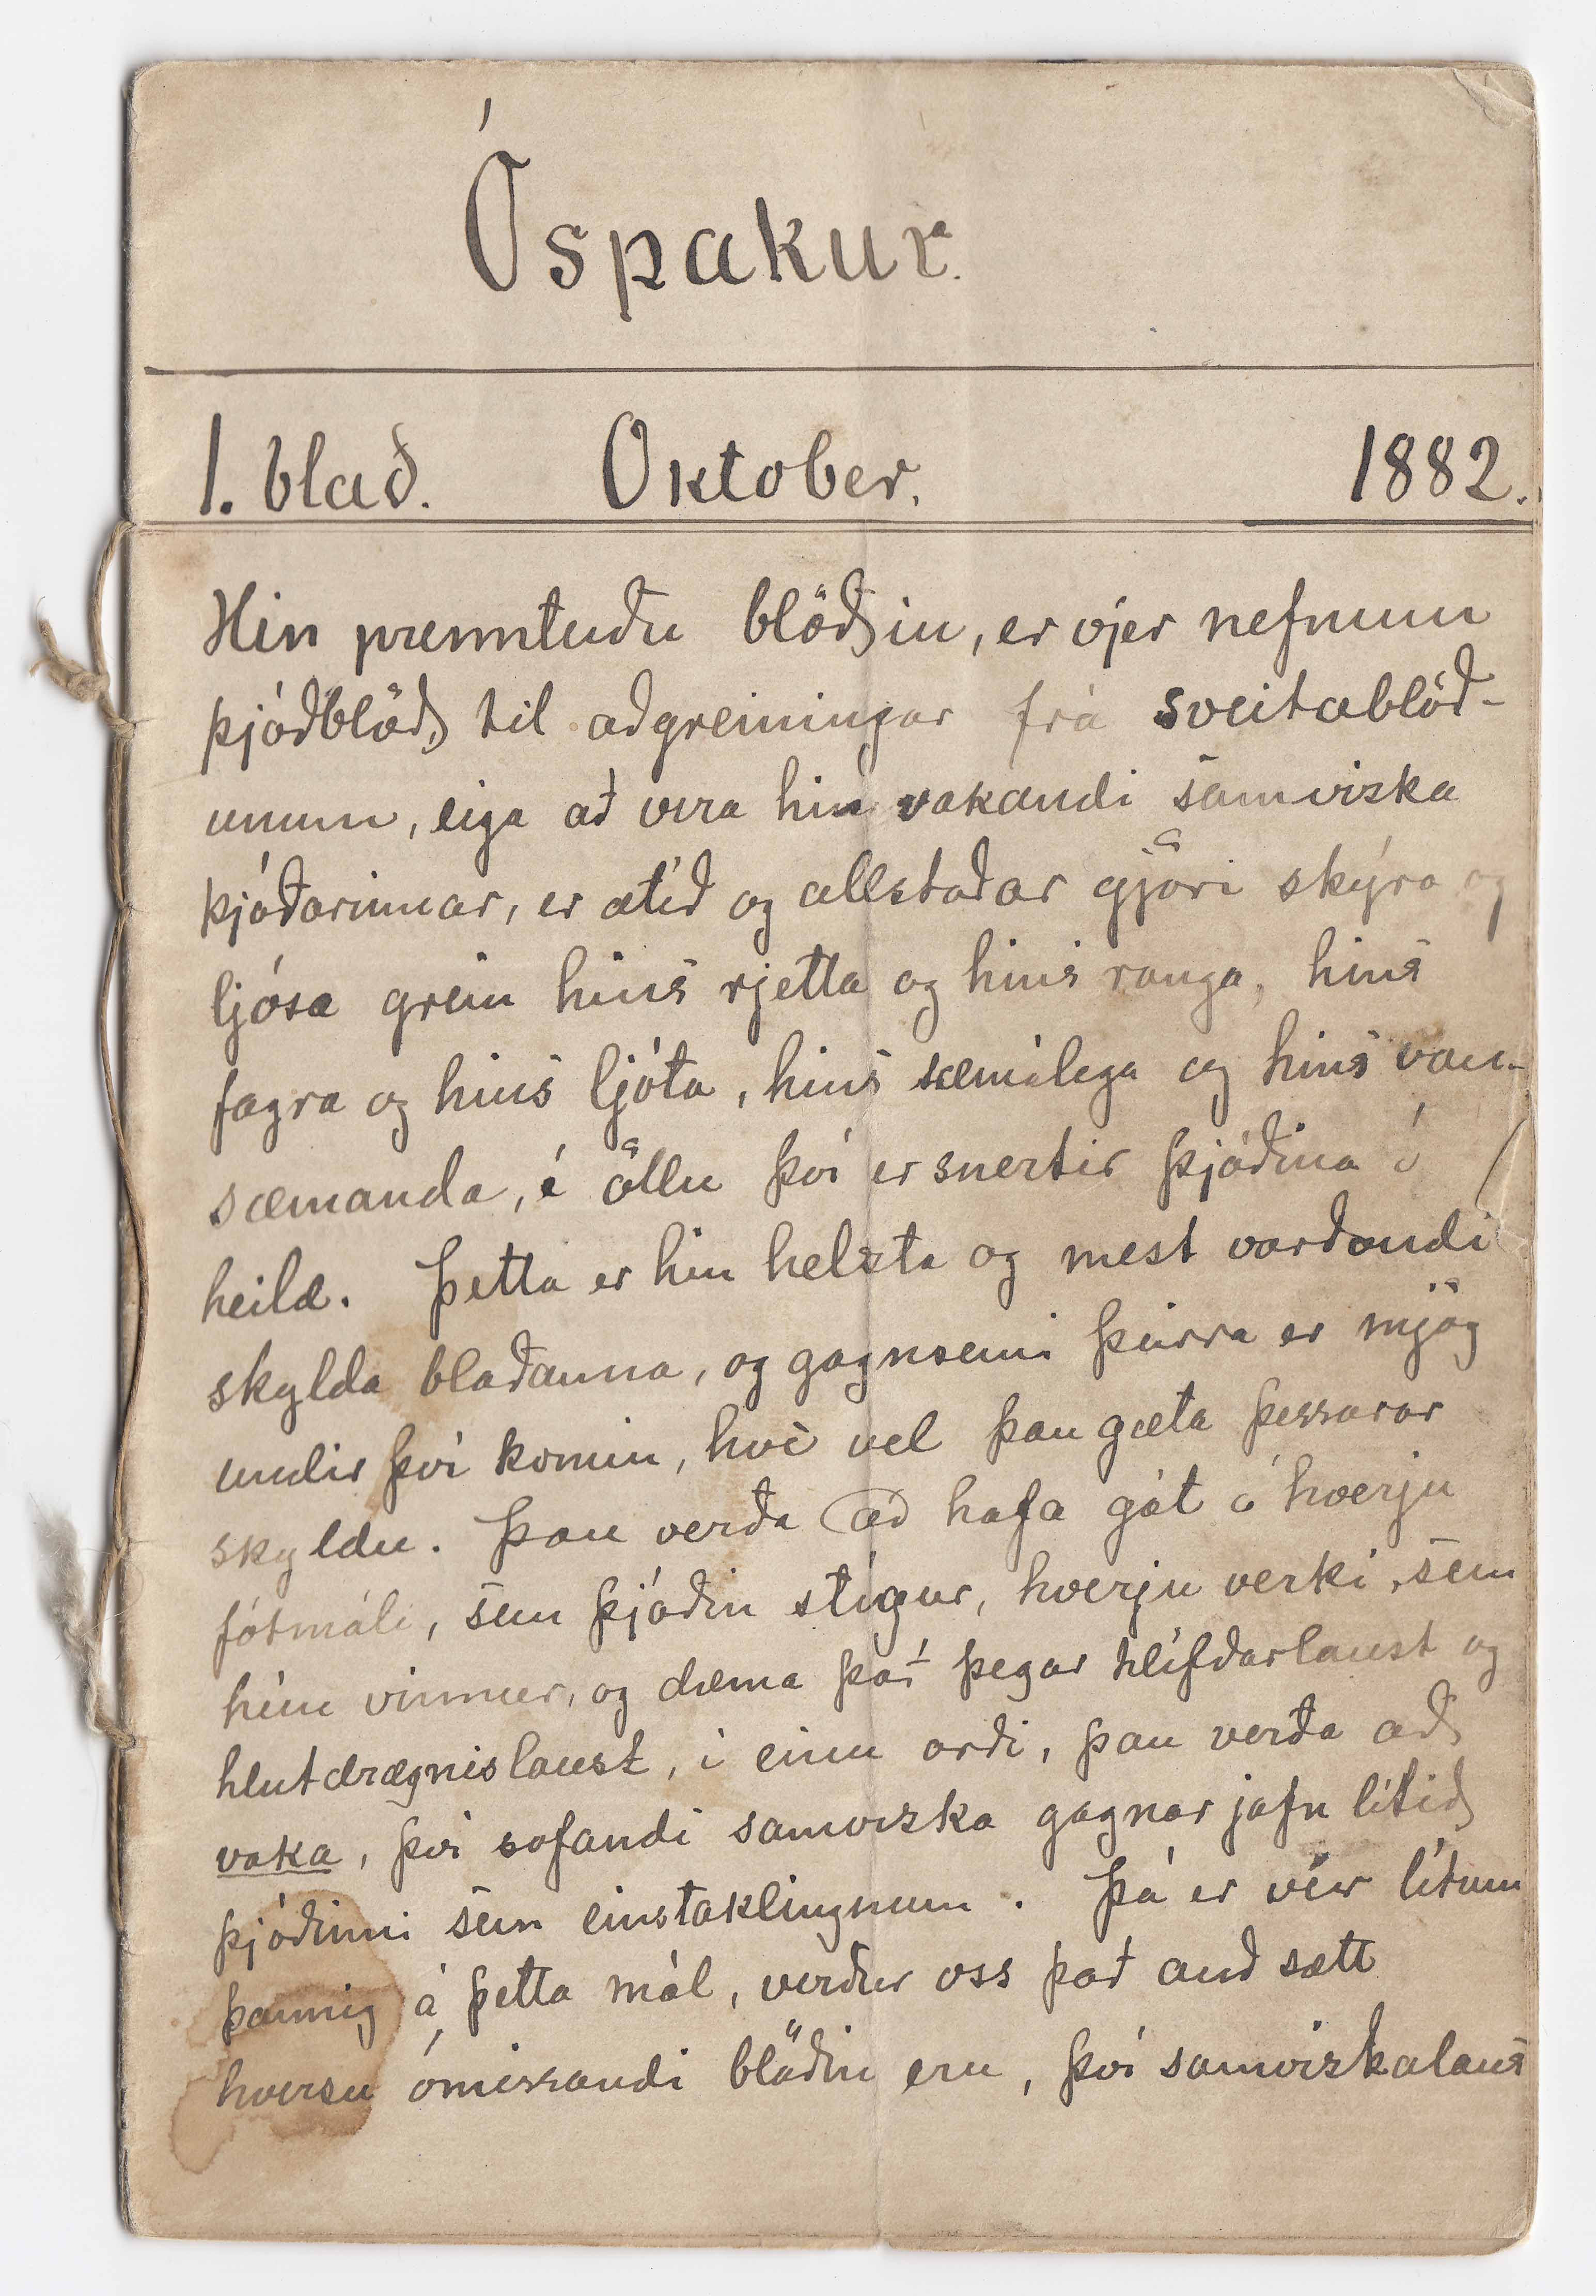 Óspakur.
1. blað. Oktober. 1882.
Hin prenntuðu blöðin, er vjer nefnum
þjóðblöð, til aðgreiningar frá sveitablöð-
unum, eiga að vera hin vakandi samvizka
þjóðarinnar, er ætíð og allstaðar gjöri skýra og
ljósa grein hins rjetta og hins ranga, hins
fagra og hins ljóta, hins sæmilega og hins van-
sæmanda, í öllu því er snertir þjóðina í
heild. Þetta er hin helzta og mest varðandi
skylda blaðanna, og gagnsemi þeirra er mjög
undir því komin, hvè vel þau gæta þessarar
skyldu. Þau verða að hafa gát á hverju
fótmáli, sem þjóðin stígur, hverju verki, sem
hún vinnur, og dæma það þegar hlífðarlaust og
hlutdrægnislaust, í einu orði, þau verða að
vaka, því sofandi samvizka gagnar jafn lítið
þjóðinni sem einstaklingnum. Þá er vér lítum
þannig á þetta mál, verður oss það auð sætt
hversu ómissandi blöðin eru, því samvizkalaus